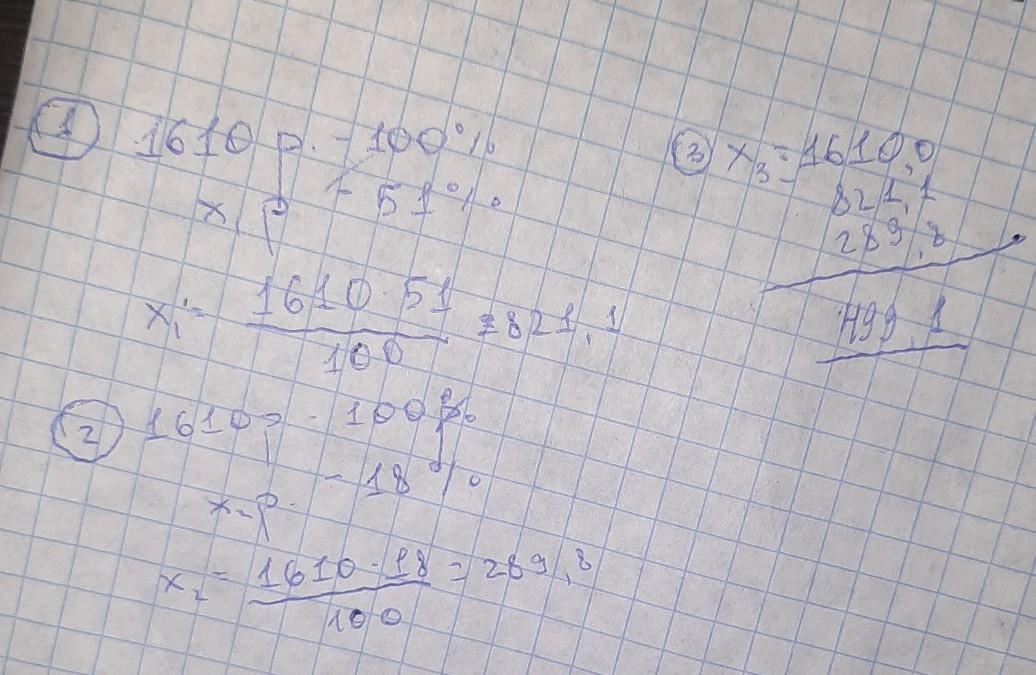 ① 1610 р. - 100%
x₁ р - 51%.
x₁ = 1610 · 51
100
= 821,1
② 1610 р - 100%
x₂ р. - 18%
x₂ = 1610 · 18 = 289,8
100
③ x₃ = 1610,0
821,1
289,8
499,1